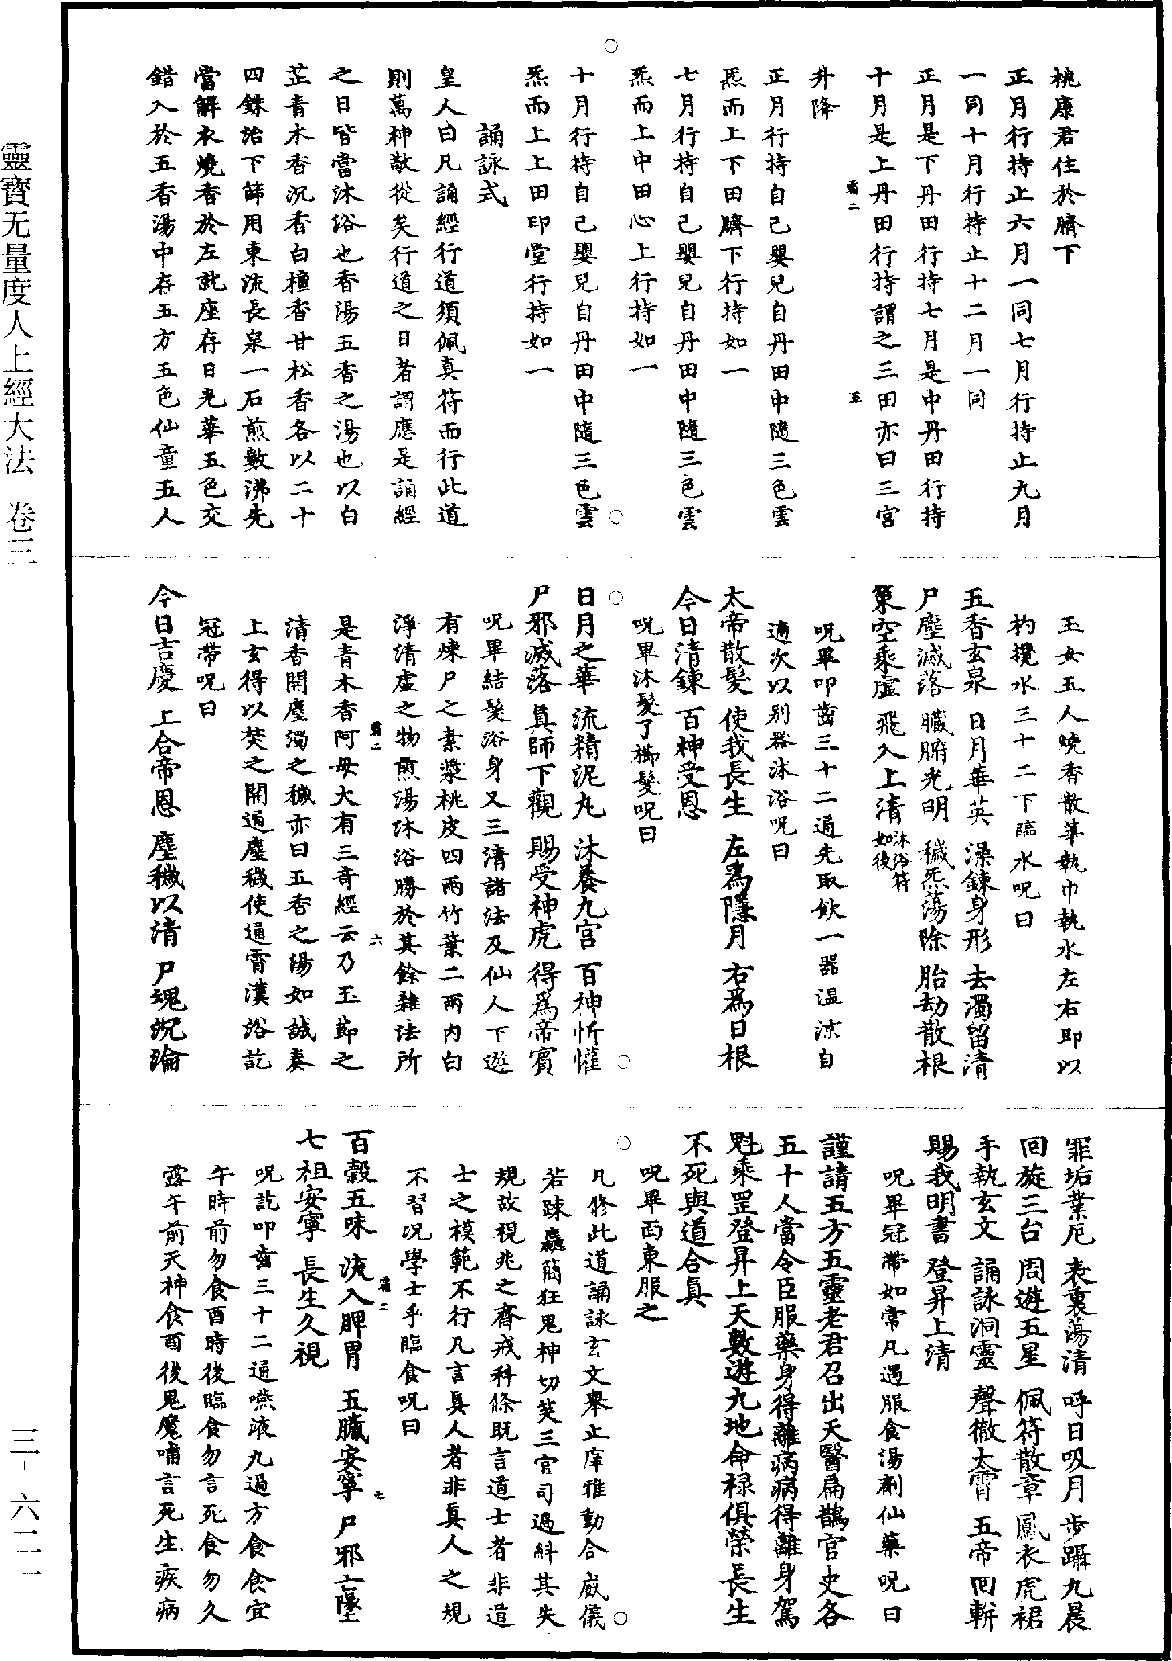 桃康君住於臍下
正月行持止六月一同七月行持止九月
一同十月行持止十二月一同
正月是下丹田行持七月是中丹田行持
十月是上丹田行持謂之三田亦曰三宮
升降
正月行持自己嬰兒自丹田中隨三色雲
炁而上下田臍下行持如一
七月行持自己嬰兒自丹田中隨三色雲
炁而上中田心上行持如一
十月行持自己嬰兒自丹田中隨三色雲
炁而上上田印堂行持如一
誦詠式
皇人曰凡誦經行道須佩真符而行此道
則萬神敬從矣行道之日若謂應是誦經
之日皆當沐浴也香湯五香之湯也以白
芷青木香沉香白檀香甘松香各以二十
四銖治下篩用東流長泉一石煎數沸先
當解衣燒香於左訖座存日光華五色交
錯入於五香湯中存五方五色仙童五人
玉女五人燒香散華執巾執水左右即以
杓攪水三十二下臨水呪曰
五香玄泉 日月華英 澡鍊身形 去濁留清
尸塵滅落 臟腑光明 穢炁蕩除 胎劫散根
策空乘虛 飛入上清 沐浴符如後
呪畢叩齒三十二通先取飲一器溫涼自
適次以別器沐浴呪曰
太帝散髮 使我長生 左為隱月 右為日根
今日清鍊 百神受恩
呪畢沐髮了櫛髮呪曰
日月之華 流精泥丸 沐養九宮 百神忻懽
尸邪滅落 真師下觀 賜受神虎 得為帝賓
呪畢結髮浴身又三清諸法及仙人下遊
有煉尸之素漿桃皮四兩竹葉二兩內白
淨清虛之物煎湯沐浴勝於其餘雜法所
是青木香阿母大有三奇經云乃玉節之
清香開塵濁之穢亦曰五香之湯如誠奏
上玄得以焚之開通塵穢使通霄漢浴訖
冠帶呪曰
今日吉慶 上合帝恩 塵穢以清 尸魂沉淪
罪垢業厄 表裏蕩清 呼日吸月 步躡九晨
回旋三台 周遊五星 佩符散章 鳳衣虎裙
手執玄文 誦詠洞靈 聲徹太霄 五帝回軿
賜我明書 登昇上清
呪畢冠帶如常凡遇服食湯劑仙藥呪曰
謹請五方五靈老君召出天醫扁鵲官史各
五十人當令臣服藥身得離病病得離身駕
魁乘罡登昇上天數遊九地命祿俱榮長生
不死與道合真
呪畢面東服之
凡修此道誦詠玄文舉止庠雅動合威儀
若踈麤簡狂鬼神切笑三官司過糾其失
規故視兆之齋戒科條既言道士者非道
士之模範不行凡言真人者非真人之規
不習況學士乎臨食呪曰
百穀五味 流入脾胃 五臟安寧 尸邪亡墜
七祖安寧 長生久視
呪訖叩齒三十二通嚥液九過方食食宜
午時前勿食酉時後臨食勿言死食勿久
露午前天神食酉後鬼魔哺言死生疾病
靈寶无量度人上經大法 卷三
三-六二一